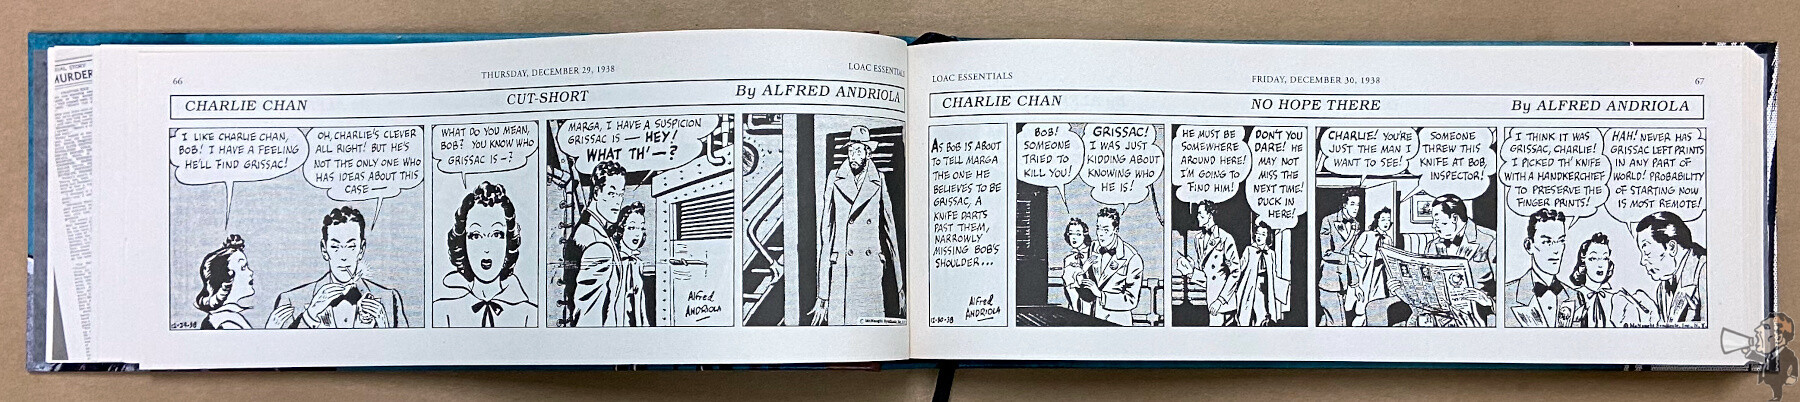 66
THURSDAY, DECEMBER 29, 1938
LOAC ESSENTIALS
CHARLIE CHAN
CUT-SHORT
By ALFRED ANDRIOLA
I LIKE CHARLIE CHAN,
BOB! I HAVE A FEELING
HE'LL FIND GRISSAC!
OH, CHARLIE'S CLEVER
ALL RIGHT! BUT HE'S
NOT THE ONLY ONE WHO
HAS IDEAS ABOUT THIS
CASE —
12-29-38
WHAT DO YOU MEAN,
BOB? YOU KNOW WHO
GRISSAC IS —?
MARGA, I HAVE A SUSPICION
GRISSAC IS — HEY!
WHAT TH' —?
Alfred
ANDRIOLA
LOAC ESSENTIALS
FRIDAY, DECEMBER 30, 1938
67
CHARLIE CHAN
NO HOPE THERE
By ALFRED ANDRIOLA
AS BOB IS ABOUT
TO TELL MARGA
THE ONE HE
BELIEVES TO BE
GRISSAC, A
KNIFE DARTS
PAST THEM,
NARROWLY
MISSING BOB'S
SHOULDER...
Alfred
ANDRIOLA
12-30-38
BOB!
SOMEONE
TRIED TO
KILL YOU!
GRISSAC!
I WAS JUST
KIDDING ABOUT
KNOWING WHO
HE IS!
HE MUST BE
SOMEWHERE
AROUND HERE!
I'M GOING TO
FIND HIM!
DON'T YOU
DARE! HE
MAY NOT
MISS THE
NEXT TIME!
DUCK IN
HERE!
CHARLIE! YOU'RE
JUST THE MAN I
WANT TO SEE!
SOMEONE
THREW THIS
KNIFE AT BOB,
INSPECTOR!
I THINK IT WAS
GRISSAC, CHARLIE!
I PICKED TH' KNIFE
WITH A HANDKERCHIEF
TO PRESERVE THE
FINGER PRINTS!
HAH! NEVER HAS
GRISSAC LEFT PRINTS
IN ANY PART OF
WORLD! PROBABILITY
OF STARTING NOW
IS MOST REMOTE!
© McNaught Syndicate, Inc., N. Y.